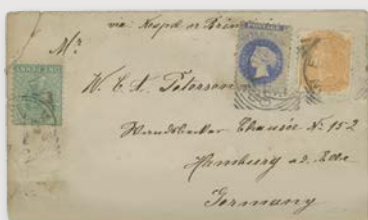 via: Neapel or Brindisi
Mr
W. C. A. Peterson
Wandsbecker Chaussée No: 152
Hamburg a.d. Elbe
Germany
POSTAGE
ONE PENNY